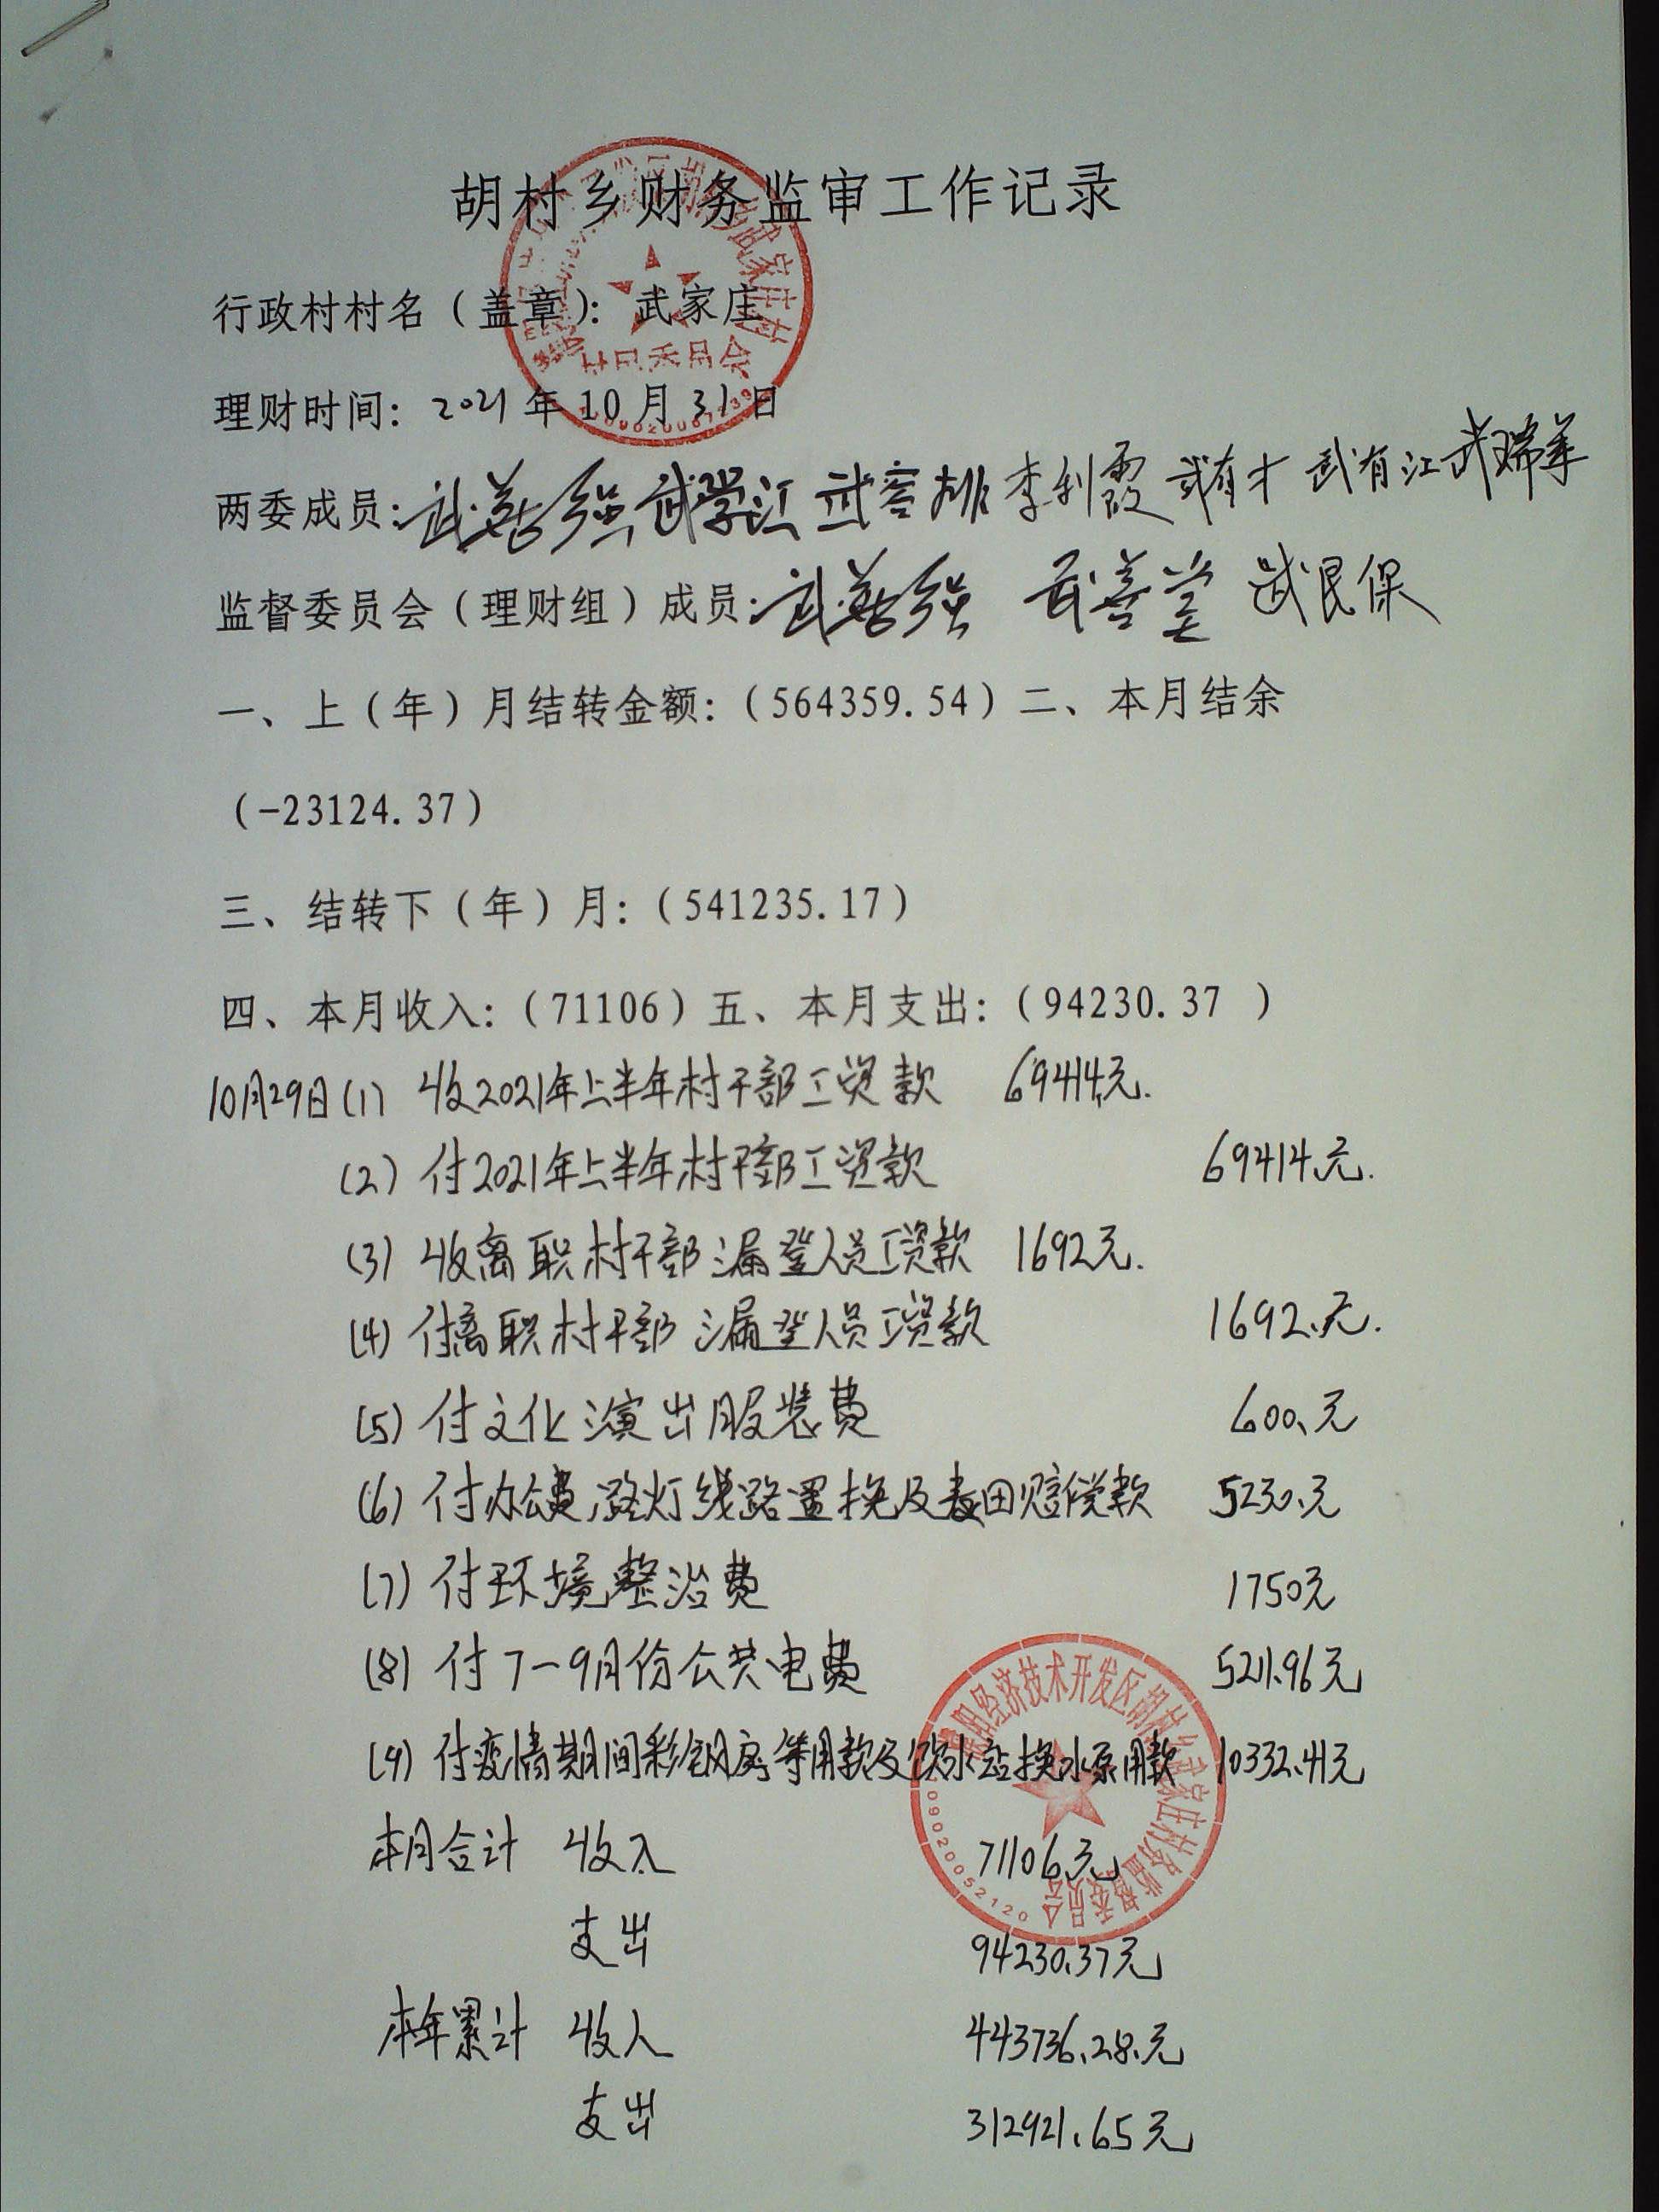 胡村乡财务监审工作记录
行政村村名（盖章）：武家庄
理财时间：2021年10月31日
两委成员：武 强 武学江 武 排 李利霞 武有才 武有江 武瑞
监督委员会（理财组）成员：武 强 武善堂 武民保
一、上（年）月结转金额：（564359.54）二、本月结余
（-23124.37）
三、结转下（年）月：（541235.17）
四、本月收入：（71106）五、本月支出：（94230.37 ）
10月29日(1) 收2021年上半年村干部工资款 69414元.
(2) 付2021年上半年村干部工资款 69414元.
(3) 收离职村干部漏登人员工资款 1692元.
(4) 付离职村干部漏登人员工资款 1692元.
(5) 付文化演出服装费 600元
(6) 付办公费,路灯线路置换及麦田赔偿款 5230元
(7) 付环境整治费 1750元
(8) 付7-9月份公共电费 5211.96元
(9) 付疫情期间彩钢房等用款及饮水站换水泵用款 10332.41元
本月合计 收入 71106元
支出 94230.37元
本年累计 收入 443736.28元
支出 312921.65元
经济技术开发区胡村乡武家庄村务监督委员会
0902005 2120